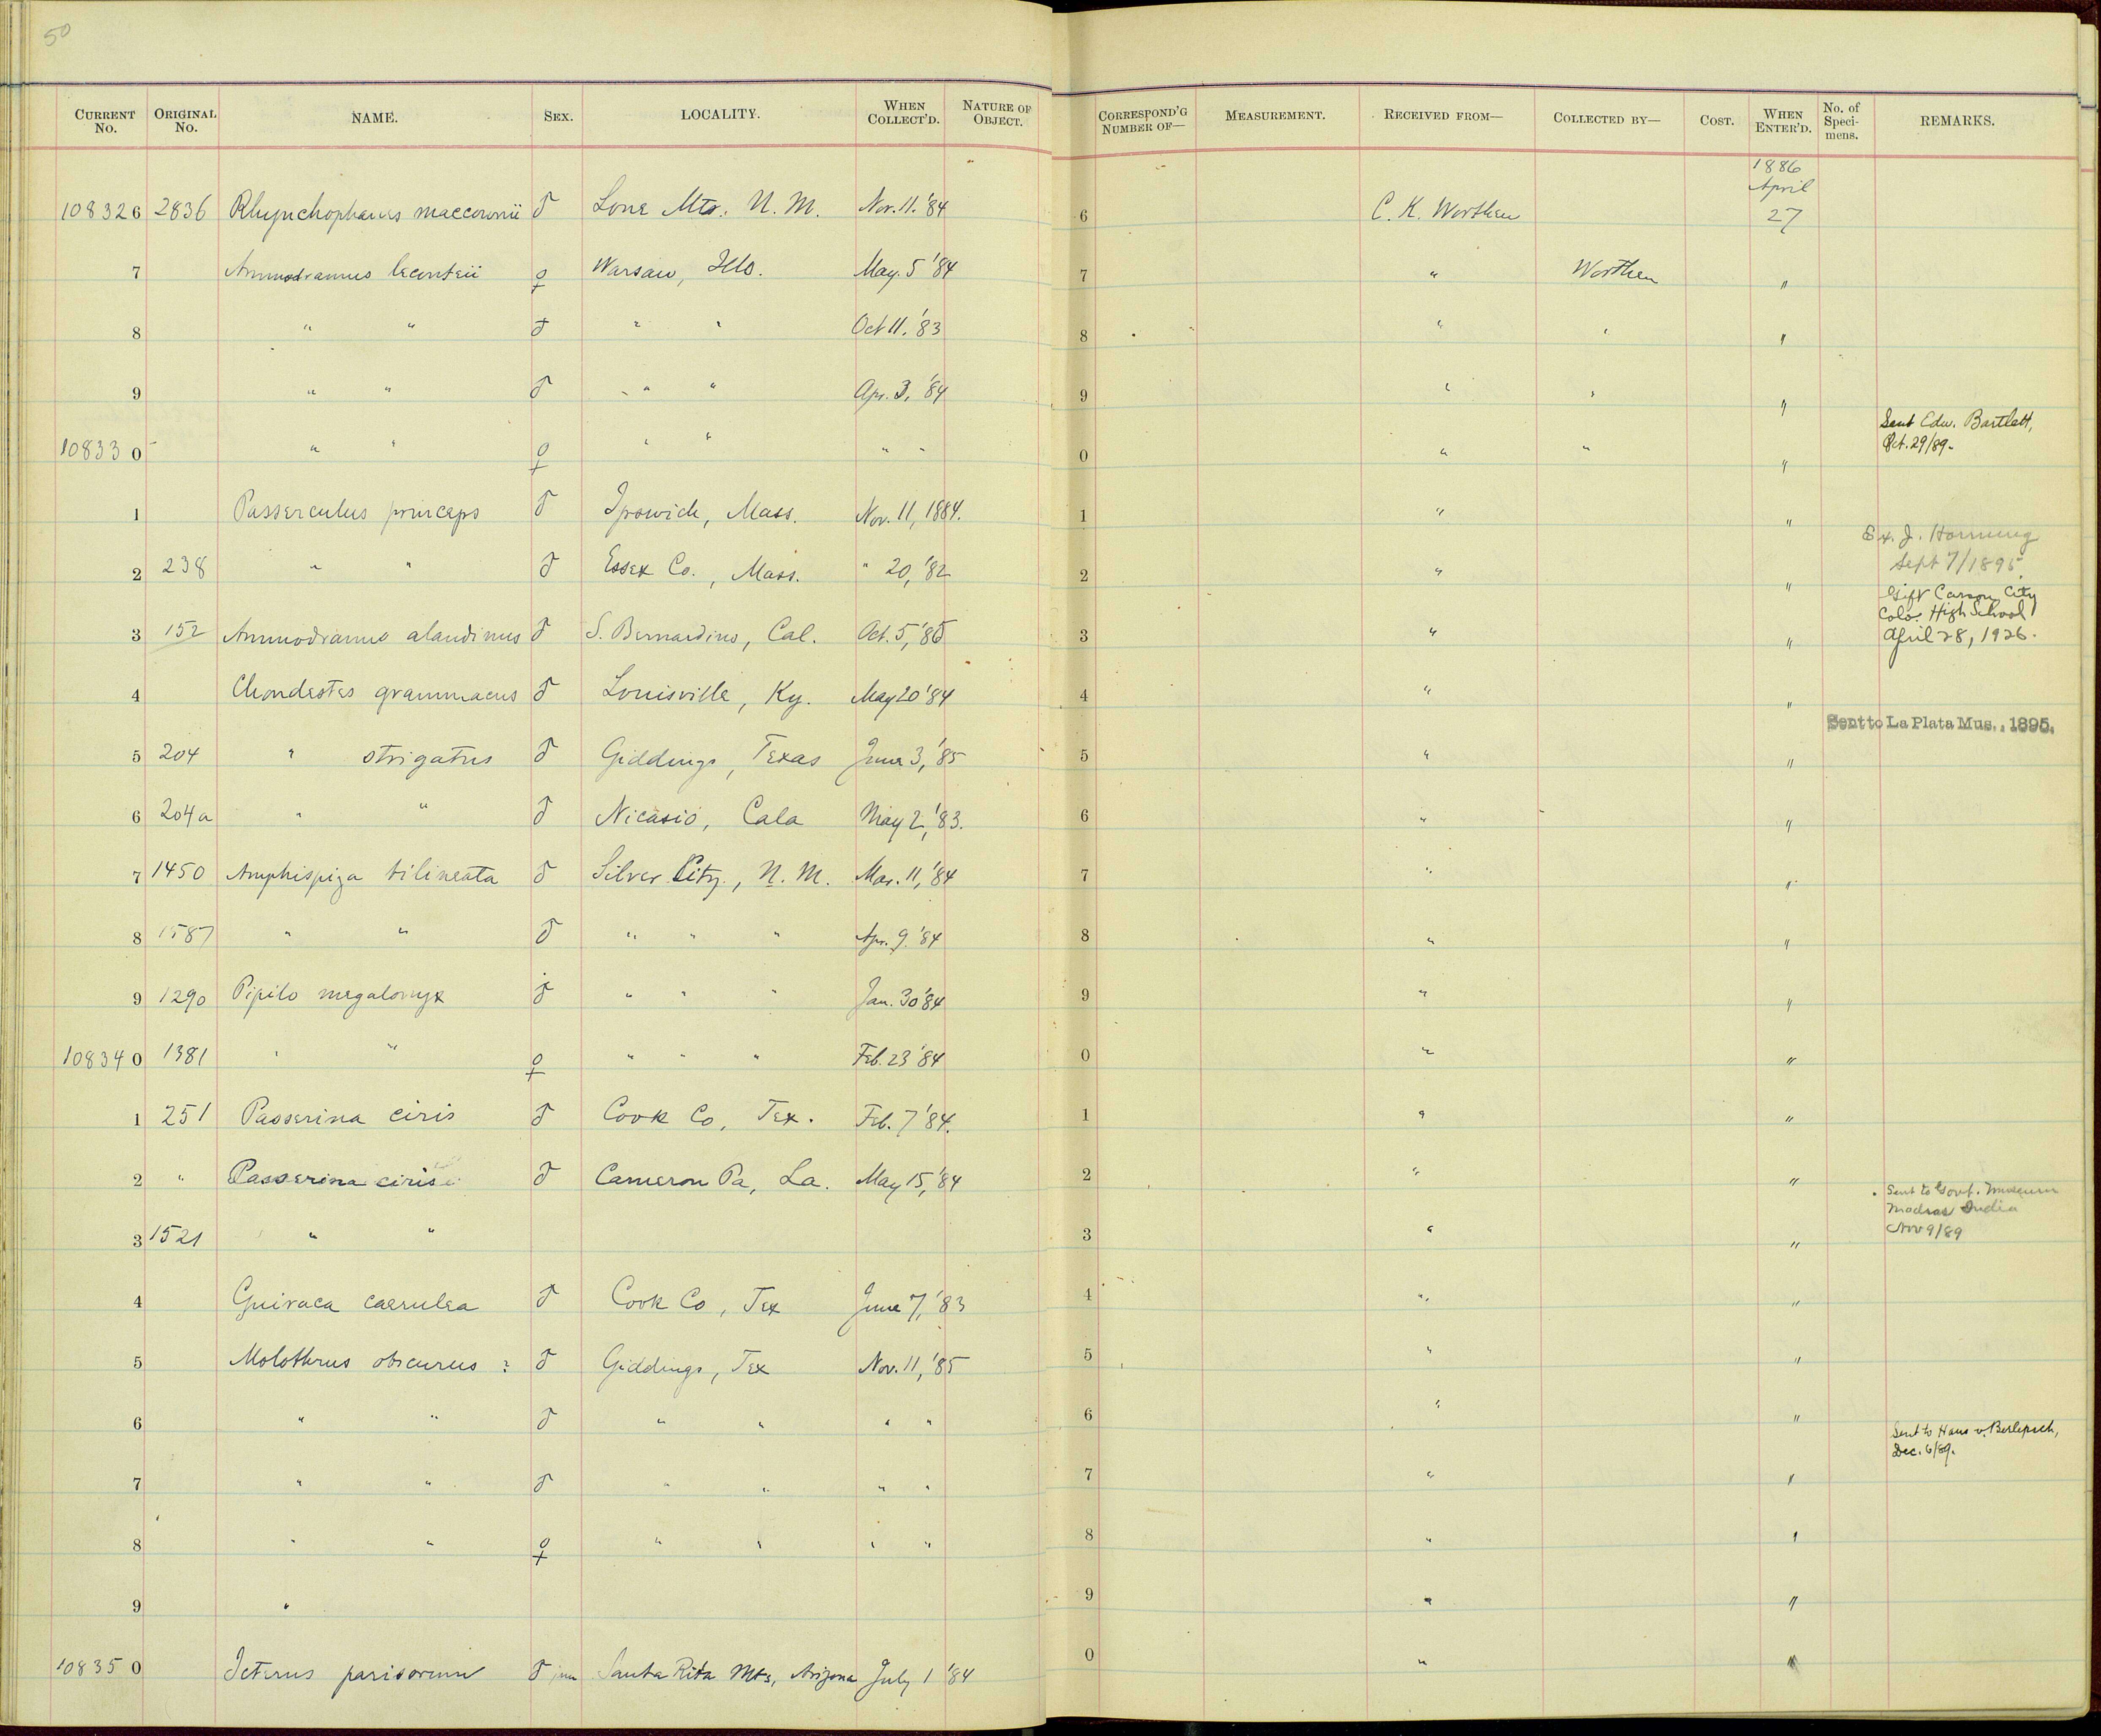 50
CURRENT No. ORIGINAL No. NAME. SEX. LOCALITY. WHEN COLLECT'D. NATURE OF OBJECT. CORRESPOND'G NUMBER OF— MEASUREMENT. RECEIVED FROM— COLLECTED BY— COST. WHEN ENTER'D. No. of Speci-mens. REMARKS.
1886
April
108326 2836 Rhynchophanes maccownii ♂ Lone Mts. N. M. Nov. 11. '84 6 C. K. Worthen 27
7 Ammodramus leconteii ♀ Warsaw, Ills. May. 5 '84 7 " Worthen "
8 " " ♂ " " Oct 11. '83 8 " " "
9 " " ♂ " " Apr. 3, '84 9 " " "
108330 " " ♀ " " " " 0 " " " Sent Edw. Bartlett,
Oct. 29/89-
1 Passerculus princeps ♂ Ipswich, Mass. Nov. 11, 1884. 1 " "
2 238 " " ♂ Essex Co., Mass. " 20, '82 2 " " Ex. J. Hornung
Sept 7/1895
3 152 Ammodramus alaudinus ♂ S. Bernardino, Cal. Oct. 5, '85 3 " " Gift Canon City
Colo. High School
April 28, 1926.
4 Chondestes grammacus ♂ Louisville, Ky. May 20 '84 4 " "
5 204 " strigatus ♂ Giddings, Texas June 3, '85 5 " " Sent to La Plata Mus., 1895.
6 204a " " ♂ Nicasio, Cala May 2, '83. 6 " "
7 1450 Amphispiza bilineata ♂ Silver City, N. M. Mar. 11, '84 7 " "
8 1587 " " ♂ " " " Apr. 9. '84 8 " "
9 1290 Pipilo megalonyx ♂ " " " Jan. 30 '84 9 " "
108340 1381 " " ♀ " " " Feb. 23 '84 0 " "
1 251 Passerina ciris ♂ Cook Co, Tex. Feb. 7 '84. 1 " "
2 " Passerina ciris ♂ Cameron Pa, La. May 15, '84 2 " "
3 1521 " " 3 " " Sent to Govt. Museum
Madras India
Nov 9/89
4 Guiraca caerulea ♂ Cook Co, Tex June 7, '83 4 " "
5 Molothrus obscurus ? ♂ Giddings, Tex Nov. 11, '85 5 " "
6 " " ♂ " " " " 6 " "
7 " " ♂ " " " " 7 " " Sent to Hans v. Berlepsch,
Dec. 6/89.
8 " " ♀ " " " " 8 " "
9 " 9 " "
108350 Icterus parisorum ♂ juv Santa Rita Mts, Arizona July 1 '84 0 " "